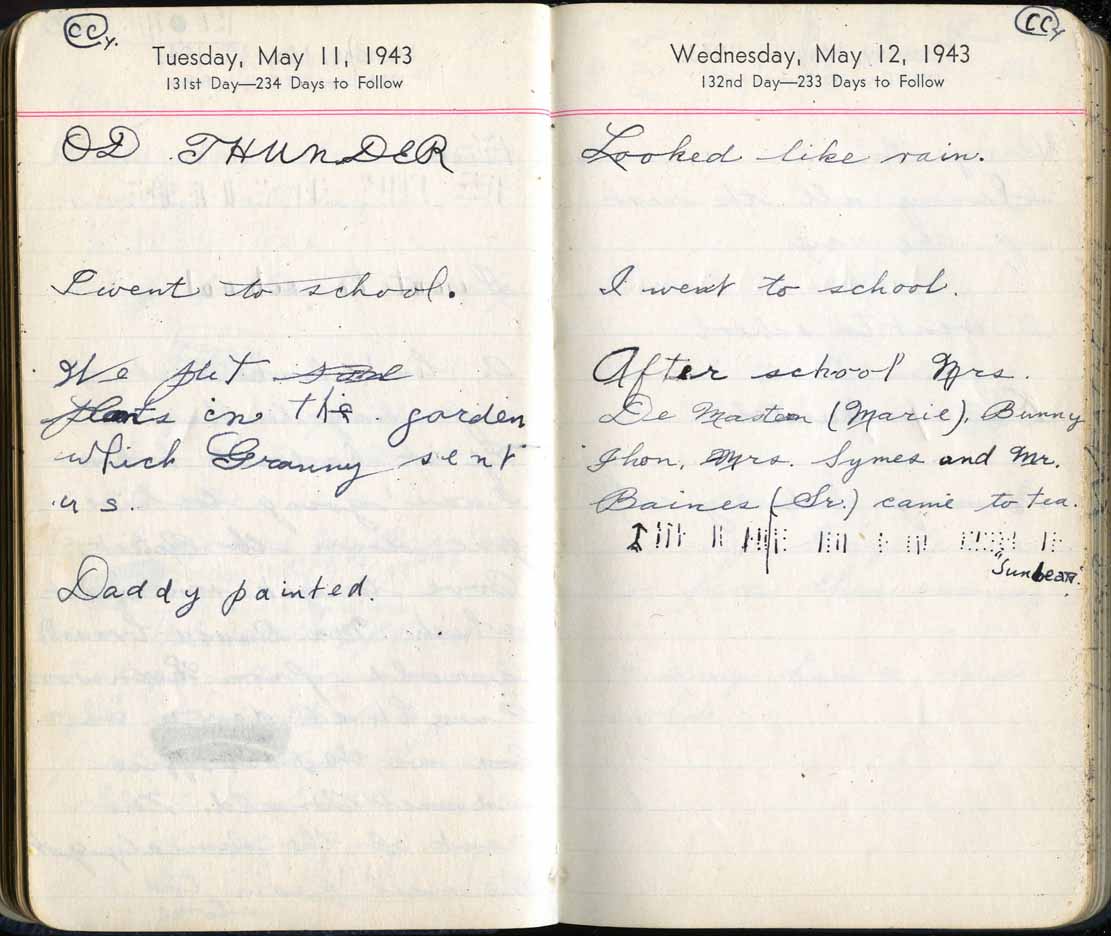 CCy.
Tuesday, May 11, 1943
131st Day—234 Days to Follow
OD THUNDER
I went to school.
We put some
plants in the garden
which Granny sent
us.
Daddy painted.
CCy
Wednesday, May 12, 1943
132nd Day—233 Days to Follow
Looked like rain.
I went to school.
After school Mrs.
De Masten (Marie), Bunny
Thon, Mrs. Symes and Mr.
Baines (Sr.) came to tea.
"Sunbeam".